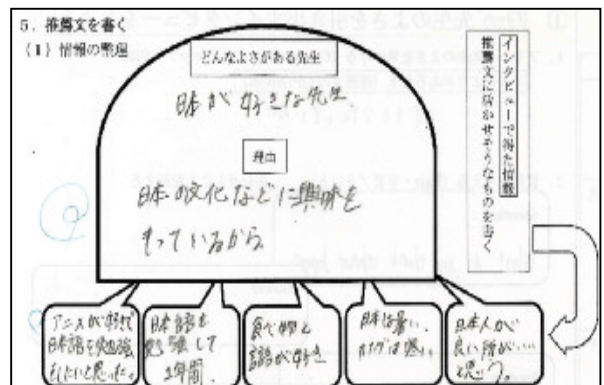 5. 推薦文を書く
(1) 情報の整理
どんなよさがある先生
日本が好きな先生。
理由
日本の文化などに興味を
もっているから
インタビューで得た情報
推薦文に活かせそうなものを書く
アニメが好きで
日本語を勉強
したいと思った。
日本語を
勉強して
2年間。
食べ物と
言語が好き
日本は暑い、
日本人が
良い所が……
思う。